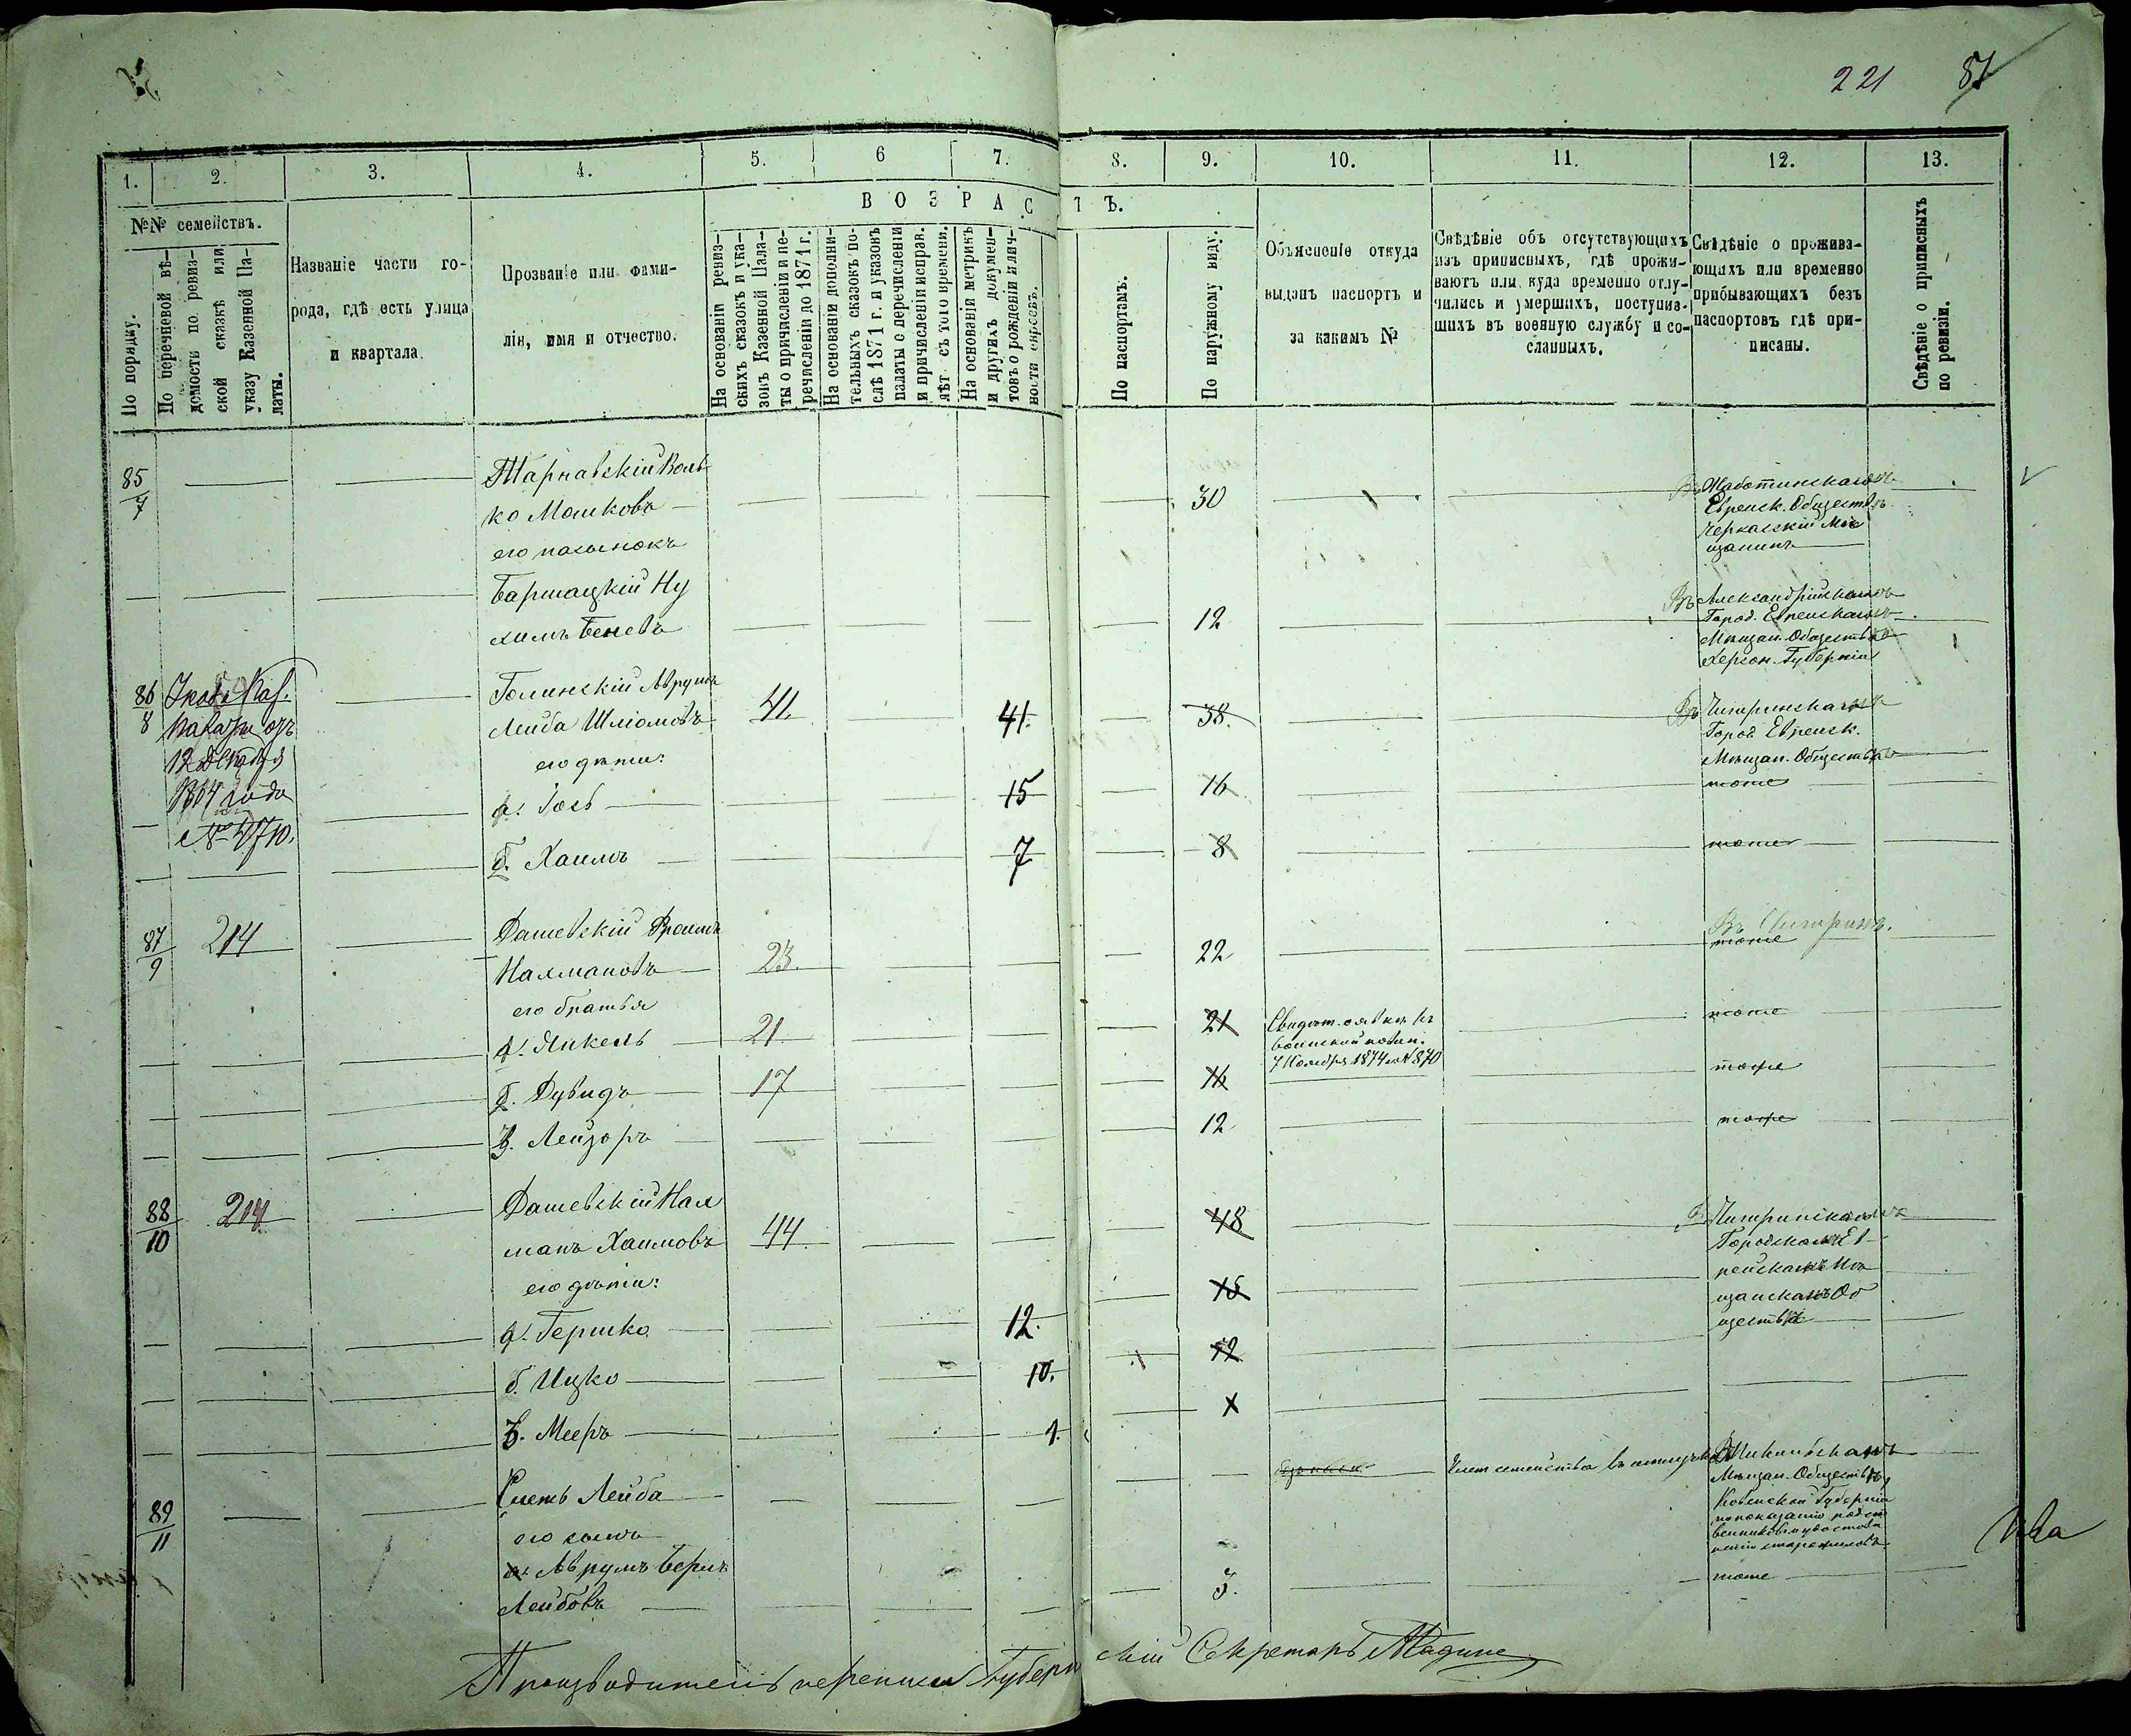 221 87
1. 2. 3. 4. 5. 6 7. 8. 9. 10. 11. 12. 13.
В О З Р А С Т Ъ.
№№ семействъ.
По порядку.
По перечневой вѣ-
домости по ревиз-
ской сказкѣ или
указу Казенной Па-
латы.
Названіе части го-
рода, гдѣ есть улица
и квартала.
Прозваніе или фами-
лія, имя и отчество.
На основаніи ревиз-
скихъ сказокъ и ука-
зовъ Казенной Пала-
ты о причисленіи и пе-
речисленіи до 1871 г.
На основаніи дополни-
тельныхъ сказокъ по-
слѣ 1871 г. и указовъ
палаты о перечисленіи
и причисленіи исправ.
лѣт съ того времени.
На основаніи метрикъ
и другихъ докумен-
товъ о рожденіи и лич-
ности евреевъ.
По паспортамъ.
По наружному виду.
Объясненіе откуда
выданъ паспортъ и
за какимъ №
Свѣдѣніе объ отсутствующихъ
изъ приписныхъ, гдѣ прожи-
ваютъ или куда временно отлу-
чились и умершихъ, поступив-
шихъ въ военную службу и со-
сланныхъ.
Свѣдѣніе о прожива-
ющихъ или временно
прибывающихъ безъ
паспортовъ гдѣ при-
писаны.
Свѣдѣніе о приписныхъ
по ревизіи.
85/7 Тарнавскій Воль
ко Мошковъ 30
его пасынокъ
Еврейск. Обществѣ
Черкасскій Мѣ
щанинъ
Баршацкій Ну
химъ Беневъ 12
Въ Александрійскомъ
Город. Еврейскомъ
Мѣщан. Обществѣ
Херсон. Губерніи
86/8 Голинскій Аврумъ
Лейба Шліомовъ 41. 41. 38.
его дѣти:
Въ Чигиринскомъ
Город. Еврейск.
Мѣщан. Обществѣ
12 Декабря
1864 года
а. Іось 15 16 тоже
б. Хаимъ 7 8 тоже
87/9 214 Дашевскій Фроимъ
Нахмановъ 23. 22 Въ Чигиринѣ.
тоже
его братья
а. Янкель 21 21 тоже
7 Ноября 1874 № 870
б. Дувидъ 17 16 тоже
в. Лейзоръ 12 тоже
88/10 214 Дашевскій Нах
манъ Хаимовъ 44. 48
его дѣти:
Чигиринскомъ
Городскомъ Ев
рейскомъ Мѣ
щанскомъ Об
ществѣ
а. Гершко 12. 15
б. Ицко 10. 12
в. Мееръ 1. х
89/11 Лейба
его сынъ
Мѣщан. Обществѣ
Губерніи
а. Аврумъ Беръ
Лейбовъ 3. тоже
Производитель переписи Губернскій Секретарь